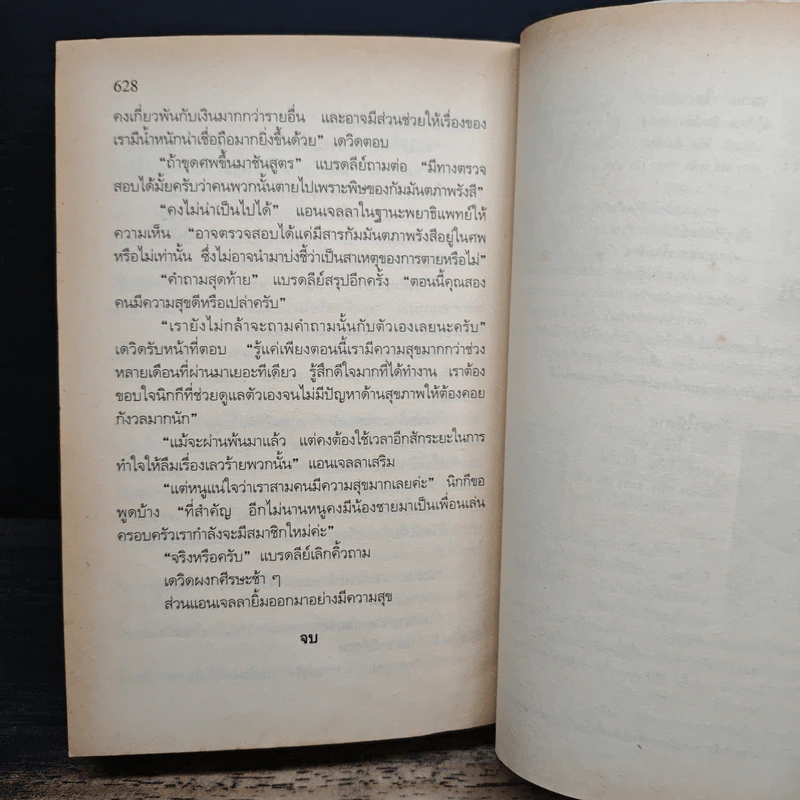 628
คงเกี่ยวพันกับเงินมากกว่ารายอื่น และอาจมีส่วนช่วยให้เรื่องของ
เรามีน้ำหนักน่าเชื่อถือมากยิ่งขึ้นด้วย” เดวิดตอบ
“ถ้าขุดศพขึ้นมาชันสูตร” แบรดลีย์ถามต่อ “มีทางตรวจ
สอบได้มั้ยครับว่าคนพวกนั้นตายไปเพราะพิษของกัมมันตภาพรังสี”
“คงไม่น่าเป็นไปได้” แอนเจลลาในฐานะพยาธิแพทย์ให้
ความเห็น “อาจตรวจสอบได้แค่มีสารกัมมันตภาพรังสีอยู่ในศพ
หรือไม่เท่านั้น ซึ่งไม่อาจนำมาบ่งชี้ว่าเป็นสาเหตุของการตายหรือไม่”
“คำถามสุดท้าย” แบรดลีย์สรุปอีกครั้ง “ตอนนี้คุณสอง
คนมีความสุขดีหรือเปล่าครับ”
“เรายังไม่กล้าจะถามคำถามนั้นกับตัวเองเลยนะครับ”
เดวิดรับหน้าที่ตอบ “รู้แค่เพียงตอนนี้เรามีความสุขมากกว่าช่วง
หลายเดือนที่ผ่านมาเยอะทีเดียว รู้สึกดีใจมากที่ได้ทำงาน เราต้อง
ขอบใจนิกกีที่ช่วยดูแลตัวเองจนไม่มีปัญหาด้านสุขภาพให้ต้องคอย
กังวลมากนัก”
“แม้จะผ่านพ้นมาแล้ว แต่คงต้องใช้เวลาอีกสักระยะในการ
ทำใจให้ลืมเรื่องเลวร้ายพวกนั้น” แอนเจลลาเสริม
“แต่หนูแน่ใจว่าเราสามคนมีความสุขมากเลยค่ะ” นิกกีขอ
พูดบ้าง “ที่สำคัญ อีกไม่นานหนูคงมีน้องชายมาเป็นเพื่อนเล่น
ครอบครัวเรากำลังจะมีสมาชิกใหม่ค่ะ”
“จริงหรือครับ” แบรดลีย์เลิกคิ้วถาม
เดวิดผงกศีรษะช้า ๆ
ส่วนแอนเจลลายิ้มออกมาอย่างมีความสุข
จบ